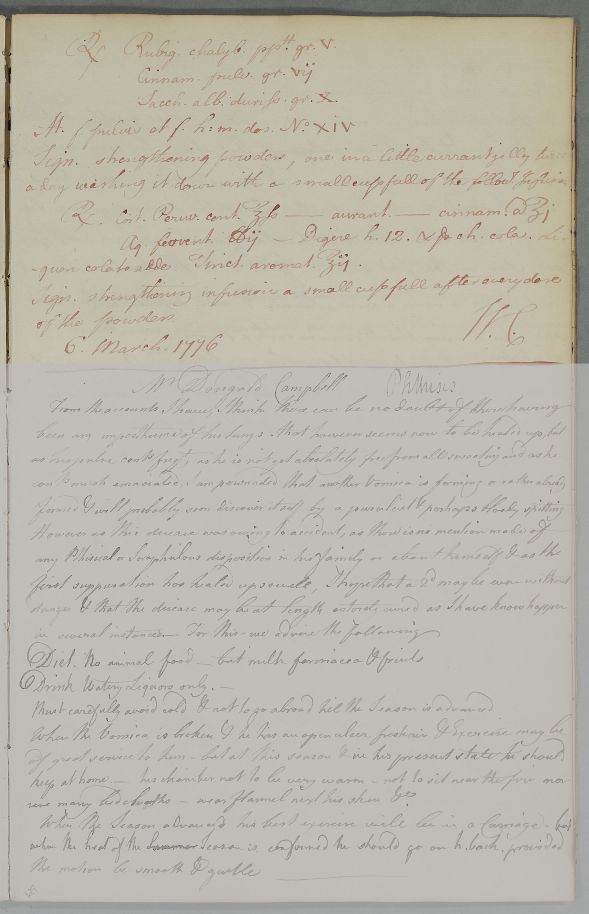 ℞ Rubig. chalyb. ppt. gr. V.
Cinnam. pulv. gr. vij
Sacch. alb. duriss. gr. X.
M. f. pulvis et f. h: m. dos. No. XIV
Sign. strengthening powders, one in a little currant jelly twice
a day washing it down with a small cupfull of the follow.g Infusion
℞. Cort. Peruv. cont. ℥ſs — aurant. — cinnam. a ʒj
Aq fervent. ℔ij — Digere h. 12. & colat. li-
-quori colato adde Tinct. aromat. ℥ij.
Sign. strengthening infusion a small cupfull after every dose
of the powders
6. March. 1776
Mr Campbell Phthisis
From the accounts I have, I think there can be no doubt of there having
been an imposthume of his lungs. that however seems now to be healed up, but
as he is not yet absolutely free from all sweating and as he
much emaciated, I am perswaded that another Vomica is forming or rather already
formed & will probably soon discover itself by a purulent & perhaps bloody spitting
However as this disease was owing to accident, as there is no mention made of
any Phthisical or Scrophulous disposition in his family or about himself & as the
first suppuration has healed up so well, I hope that a 2d may be even without
danger & that the disease may be at length entirely cured as I have known happen
in several instances — For this we advise the Following
Diet. No animal food — but milk farinacea & fruits
Drink Watery Liquors only. —
Must carefully avoid cold & not to go abroad till the Season is advanced
When the Vomica is broken & he has an open ulcer, fresh air & Exercise may be
of great service to him — but at this season & in his present state he should
keep at home. — his chamber not to be very warm — not to sit near the fire nor
use many bedcloaths — wear flannel next his skin &c
When the Season advanced his best exercise will be in a Carriage — but
when the heat of the Season is confirmed he should go on h. back. provided
the motion be smooth & gentle